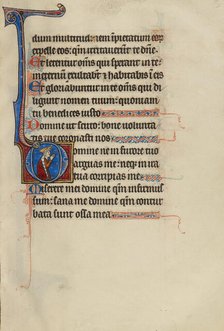 dum multitud. nem impietatum eor
expelle eos: qm irritauerunt te dne.
Et letentur omns qui sperant in te:
in eternum exultabunt et habitabis i eis
Et gloriabuntur in te omns qui di
ligunt nomen tuum: quoniam tu
benedices iusto
Domine ut scuto: bone uolunta
tis tue coronasti nos
Domine ne in furore tuo
arguas me: neq; in ira
tua corripias me
Miserere mei domine qm infirmus
sum: sana me domine qm contur
bata sunt ossa mea